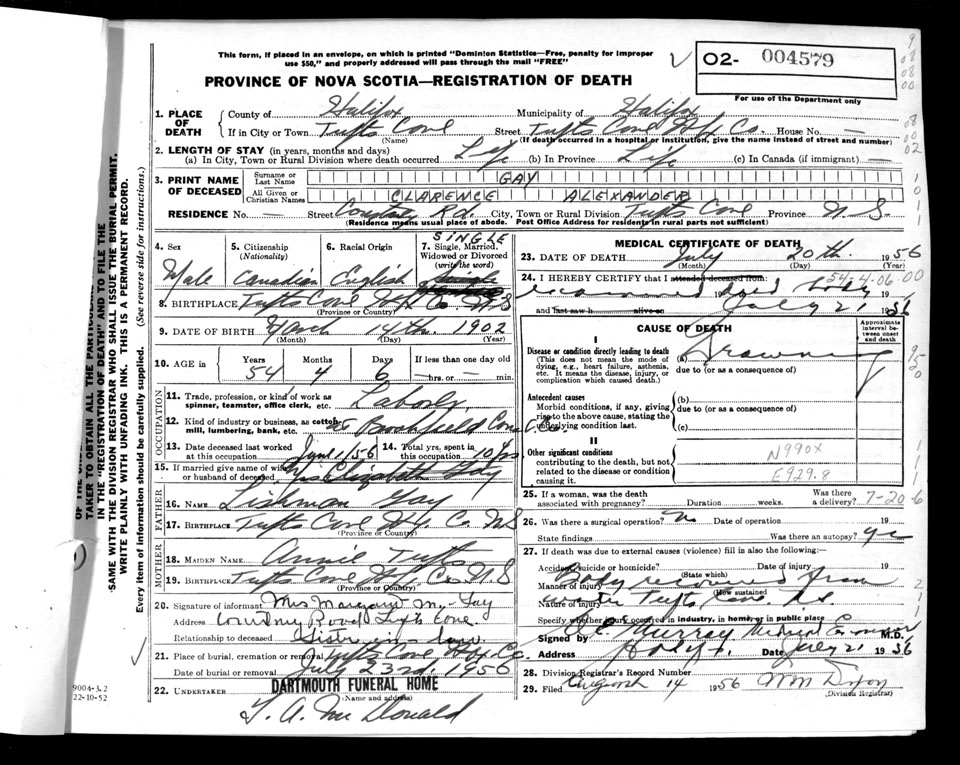 This form, if placed in an envelope, on which is printed "Dominion Statistics—Free, penalty for improper
use $50," and properly addressed will pass through the mail "FREE"
PROVINCE OF NOVA SCOTIA—REGISTRATION OF DEATH
02- 004579
For use of the Department only
1. PLACE OF DEATH
County of Halifax Municipality of Halifax
If in City or Town Tufts Cove Street Tufts Cove Hfx Co. House No. —
(Name) (If death occurred in a hospital or institution, give the name instead of street and number)
2. LENGTH OF STAY (in years, months and days)
(a) In City, Town or Rural Division where death occurred Life (b) In Province Life (c) In Canada (if immigrant) —
3. PRINT NAME OF DECEASED
Surname or Last Name GAY
All Given or Christian Names CLARENCE ALEXANDER
RESIDENCE No. — Street Country Rd. City, Town or Rural Division Tufts Cove Province N.S.
(Residence means usual place of abode. Post Office Address for residents in rural parts not sufficient)
4. Sex Male
5. Citizenship (Nationality) Canadian
6. Racial Origin English
7. Single, Married, Widowed or Divorced (write the word) SINGLE
8. BIRTHPLACE Tufts Cove Hfx Co. N.S
(Province or Country)
9. DATE OF BIRTH March 14th. 1902
(Month) (Day) (Year)
10. AGE in Years 54 Months 4 Days 6 If less than one day old —hrs. or — min.
OCCUPATION
11. Trade, profession, or kind of work as
spinner, teamster, office clerk, etc. Labor
12. Kind of industry or business, as cotton
mill, lumbering, bank, etc. Co.
13. Date deceased last worked
at this occupation June 1/56
14. Total yrs. spent in
this occupation 10 yrs
15. If married give name of wife
or husband of deceased Mrs Elizabeth Gay
FATHER
16. NAME Lishman Gay
17. BIRTHPLACE Tufts Cove Hfx. Co. N.S
(Province or Country)
MOTHER
18. MAIDEN NAME Annie Tufts
19. BIRTHPLACE Tufts Cove Hfx Co. N.S
(Province or Country)
20. Signature of informant Mrs Margaret M. Gay
Address Country Road Tufts Cove.
Relationship to deceased Sister-in-law
21. Place of burial, cremation or removal Tufts Cove Hfx. Co.
Date of burial or removal July 23rd. 1956
22. UNDERTAKER DARTMOUTH FUNERAL HOME
(Name and address)
T. A. McDonald
MEDICAL CERTIFICATE OF DEATH
23. DATE OF DEATH July 20th. 1956
(Month) (Day) (Year)
54-4-06-00
24. I HEREBY CERTIFY that I attended deceased from:
examined dead body
and last saw h alive on July 21 1956
CAUSE OF DEATH
Approximate interval between onset and death
I
Disease or condition directly leading to death
(This does not mean the mode of dying, e.g., heart failure, asthenia, etc. It means the disease, injury, or complication which caused death.)
(a) Drowning
due to (or as a consequence of)
Antecedent causes
Morbid conditions, if any, giving rise to the above cause, stating the underlying condition last.
(b)
due to (or as a consequence of)
(c)
II
Other significant conditions
contributing to the death, but not related to the disease or condition causing it.
N990X
E929.8
25. If a woman, was the death
associated with pregnancy? Duration weeks. Was there a delivery? 7-20-6
26. Was there a surgical operation? No Date of operation 19
State findings Was there an autopsy? yes
27. If death was due to external causes (violence) fill in also the following:—
Accident, suicide or homicide? Date of injury 19
(State which)
Manner of injury Body recovered from
(How sustained)
Nature of injury water Tufts Cove N.S.
Specify whether injury occurred in industry, in home, or in public place
Signed by Murray Medical Examiner M.D.
Address Halifax Date July 21 1956
28. Division Registrar's Record Number
29. Filed August 14 1956
(Division Registrar)
TAKER TO OBTAIN ALL THE PARTICULARS
IN THE "REGISTRATION OF DEATH" AND TO FILE THE
SAME WITH THE DIVISION REGISTRAR WHO SHALL ISSUE THE BURIAL PERMIT.
WRITE PLAINLY WITH UNFADING INK. THIS IS A PERMANENT RECORD.
Every item of information should be carefully supplied. (See reverse side for instructions.)
9004-3.2
22-10-52